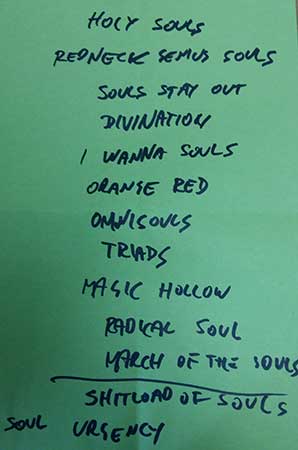 HOLY SOULS
REDNECK SEMUS SOULS
SOULS STAY OUT
DIVINATION
I WANNA SOULS
ORANGE RED
OMNISOULS
TRIADS
MAGIC HOLLOW
RADICAL SOUL
MARCH OF THE SOULS
SHITLOAD OF SOULS
SOUL URGENCY